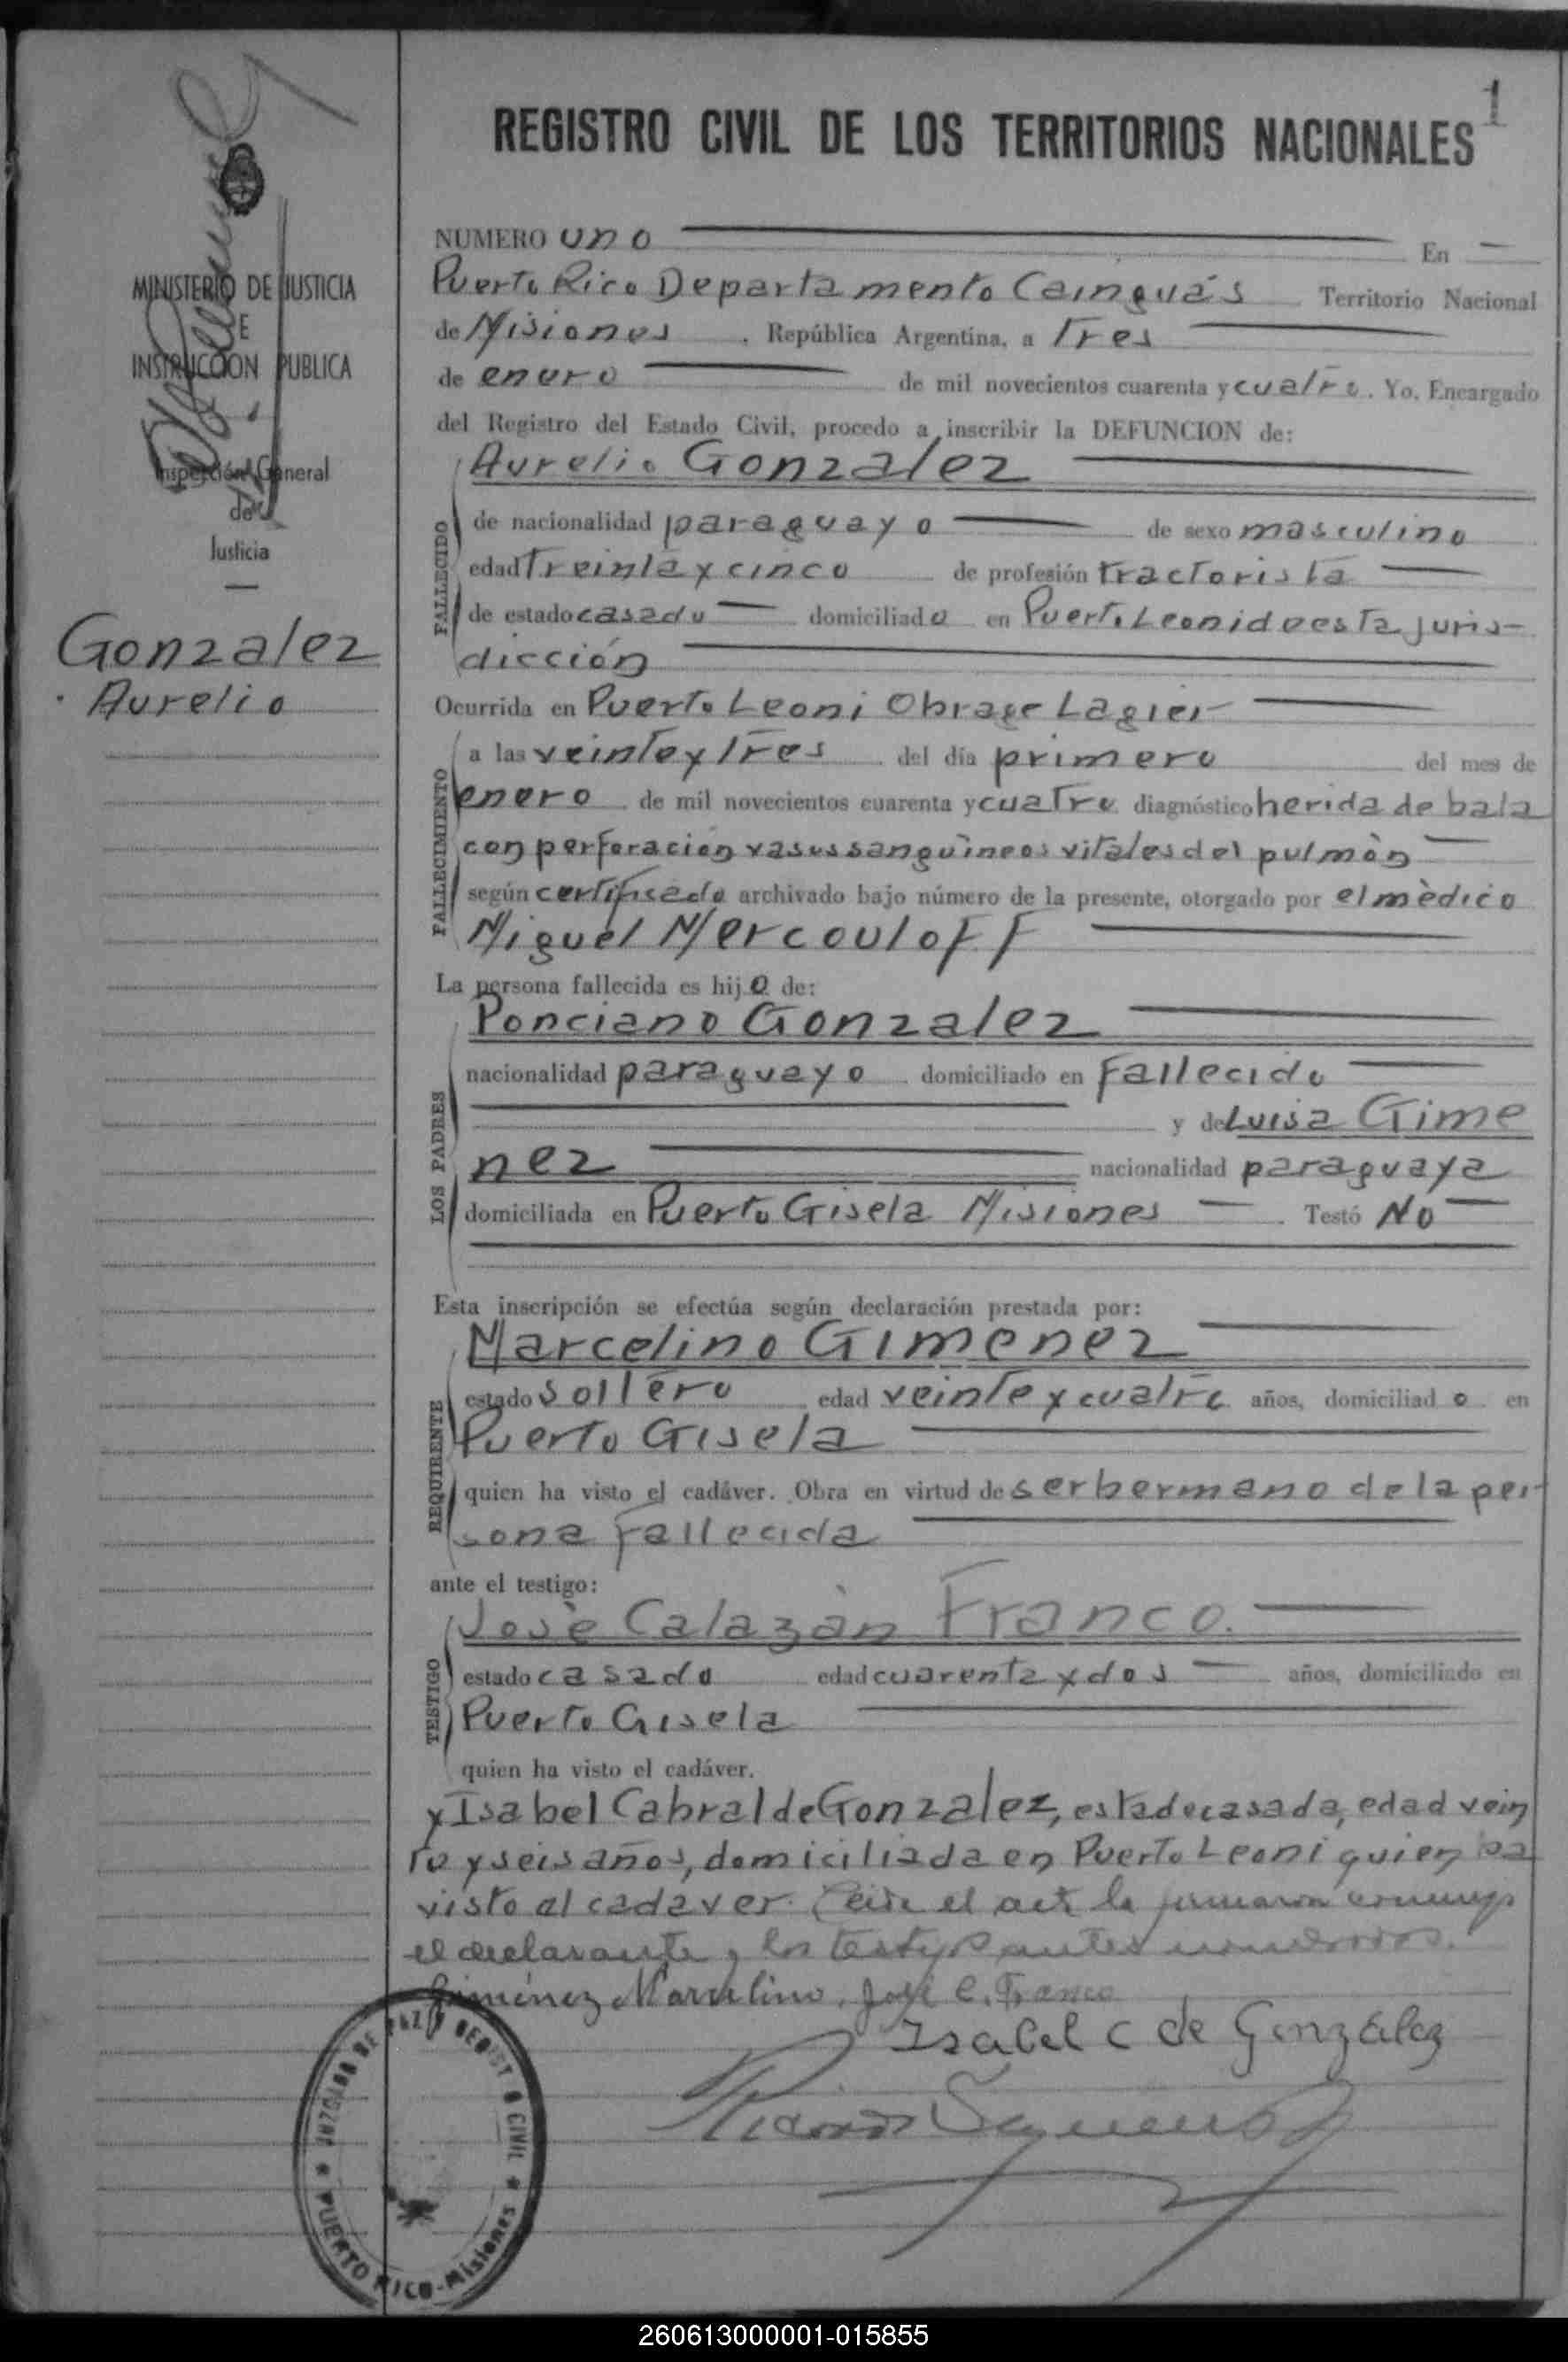 1
REGISTRO CIVIL DE LOS TERRITORIOS NACIONALES
MINISTERIO DE JUSTICIA
E
INSTRUCCION PUBLICA
Inspección General
de
Justicia
Gonzalez
Aurelio
NUMERO uno En
Puerto Rico Departamento Cainguás Territorio Nacional
de Misiones , República Argentina, a Tres
de enero de mil novecientos cuarenta y cuatro. Yo, Encargado
del Registro del Estado Civil, procedo a inscribir la DEFUNCION de:
Aurelio Gonzalez
FALLECIDO
de nacionalidad paraguayo de sexo masculino
edad Treinta y cinco de profesión tractorista
de estado casado domiciliado en Puerto Leoni de esta juris-
dicción
Ocurrida en Puerto Leoni Obrage Lagier
FALLECIMIENTO
a las veinte y Tres del día primero del mes de
enero de mil novecientos cuarenta y cuatro diagnóstico herida de bala
con perforación vasos sanguineos vitales del pulmòn
según certificado archivado bajo número de la presente, otorgado por el mèdico
Miguel Mercouloff
La persona fallecida es hijo de:
Ponciano Gonzalez
LOS PADRES
nacionalidad paraguayo domiciliado en Fallecido
y de Luisa Gime
nez nacionalidad paraguaya
domiciliada en Puerto Gisela Misiones Testó No
Esta inscripción se efectúa según declaración prestada por:
Marcelino Gimenez
REQUIRENTE
estado soltero edad veinte y cuatro años, domiciliado en
Puerto Gisela
quien ha visto el cadáver. Obra en virtud de ser hermano de la per-
sona Fallecida
ante el testigo:
Josè Calazàn Franco.
TESTIGO
estado casado edad cuarenta y dos años, domiciliado en
Puerto Gisela
quien ha visto el cadáver.
y Isabel Cabral de Gonzalez, estado casada, edad vein
te y seis años, domiciliada en Puerto Leoni quien ha
visto el cadaver. el acta la firmaron conmigo
el declarante y los testigos antes nombrados.
Giménez Marcelino. José C. Franco
Isabel C de González
JUZGADO DE PAZ Y REGISTRO CIVIL
PUERTO RICO - Misiones
260613000001-015855